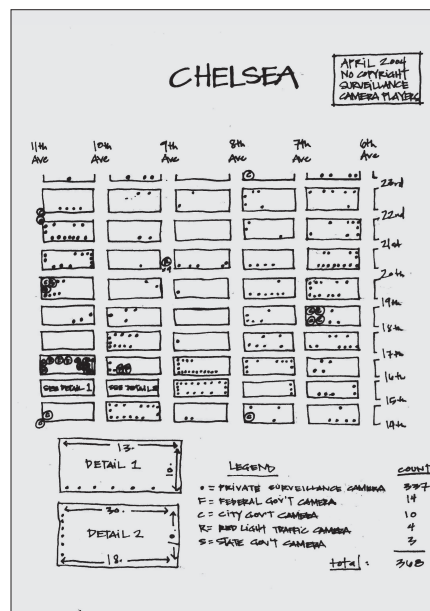 CHELSEA
APRIL 2004
NO COPYRIGHT
SURVEILLANCE
CAMERA PLAYERS
11th Ave
10th Ave
9th Ave
8th Ave
7th Ave
6th Ave
23rd
22nd
21st
20th
19th
18th
17th
16th
15th
14th
SEE DETAIL 1
SEE DETAIL 2
13.
DETAIL 1
30.
DETAIL 2
18.
LEGEND
COUNT
• = PRIVATE SURVEILLANCE CAMERA 337
F = FEDERAL GOV'T CAMERA 14
C = CITY GOV'T CAMERA 10
R = RED LIGHT TRAFFIC CAMERA 4
S = STATE GOV'T CAMERA 3
total: 368